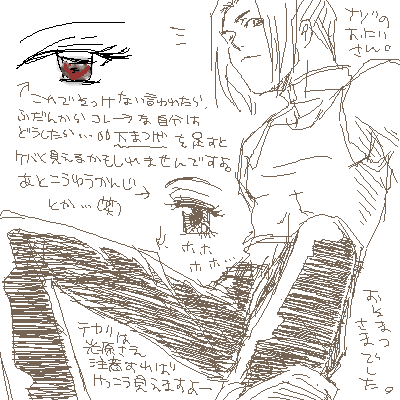 ナゾの
おにい
さん。
↑これでそっけない言われたら、
ふだんからコレ→な自分は
どうしたら…。下まつげを足すと
ケバく見えるかもしれませんですよ
あとこうゆうかんじ→
とか…(笑)
ホホ
ホホ…
テカリは
光源さえ
注意すれば
けっこう見えますよー
おそまつ
さまでした。